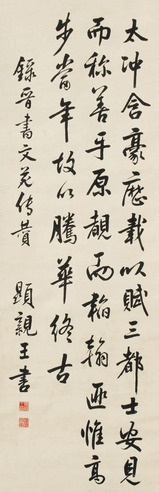 太冲含豪歷載以賦三都士安見
而称善平原覩而韜翰匪惟高
步當年故以騰華終古
錄晉書文苑傳贊 顯親王書